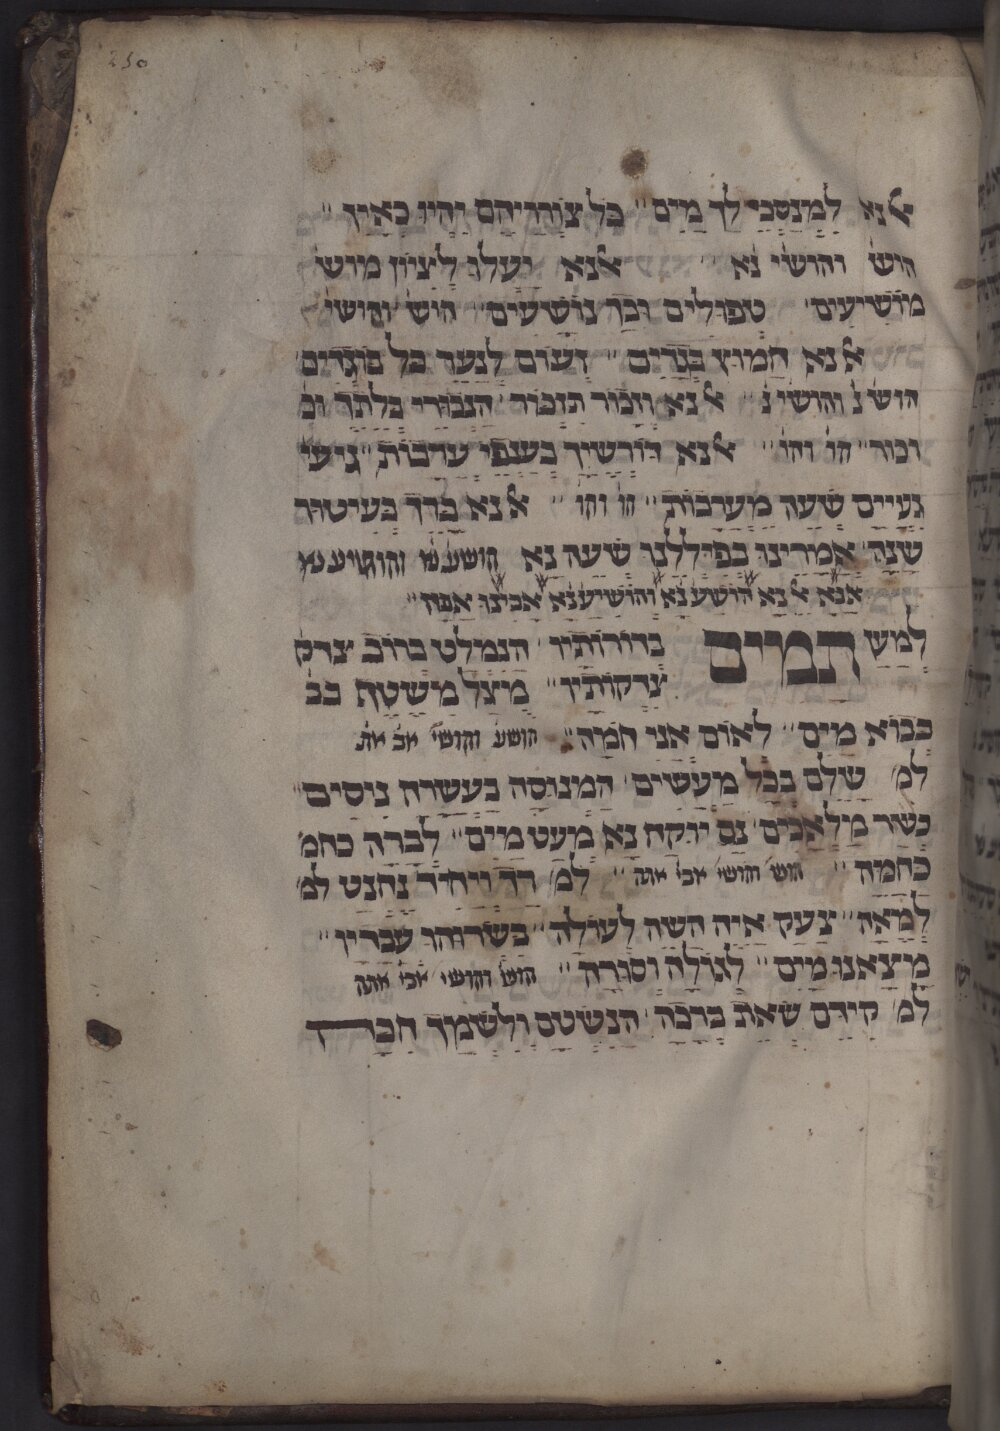 250
אנא למנסכי לך מים״ כל צוררידהם יהיו כאין״
הוש׳ והושי׳ נא״ אנא יעלו לציון מוש׳
מושיעים׳ טפולים ובך נושעים״ הוש׳ והושי׳
אנא חמוץ בגדים״ זעום לנער כל בוגדים׳
הוש׳ נ׳ והושי׳ נ״ אנא וזכור תזכור׳ הנכורי כלתך וכ׳
וכור״ הו׳ והו׳״ אנא דורשיך בענפי ערבות״ געי׳
געיים שעה מערבות״ הו׳ והו׳״ אנא ברך בעיטור
שנה׳ אמרינו בפיללנו שעה נא הושע נא והושיע נא
אנא אנא הושע נא והושיע נא אבינו אתה״
למען תמים בדורותיו׳ הנמלט ברוב צדק
צדקותיו״ מוצל משטף בב׳
כבוא מים״ לאום אני חמה״ הושע׳ והושי׳ אב׳ את׳
למ׳ שלם בכל מעשים׳ המנוסה בעשרה ניסים״
כשר מלאכים׳ נם יוקח נא מעט מים״ לברה כחמ׳
כחמה״ הוש׳ והושי׳ אבי׳ אתה״ למ׳ רך ויחיד נחנט למ׳
למאה״ צעק איה השה לעולה״ בשרוהו עבדיו״
מצאנו מים״ לגולה וסורה״ הוש׳ והושי׳ אבי׳ אתה
למ׳ קידם שאת ברכה׳ הנשטם ולשמך חכה